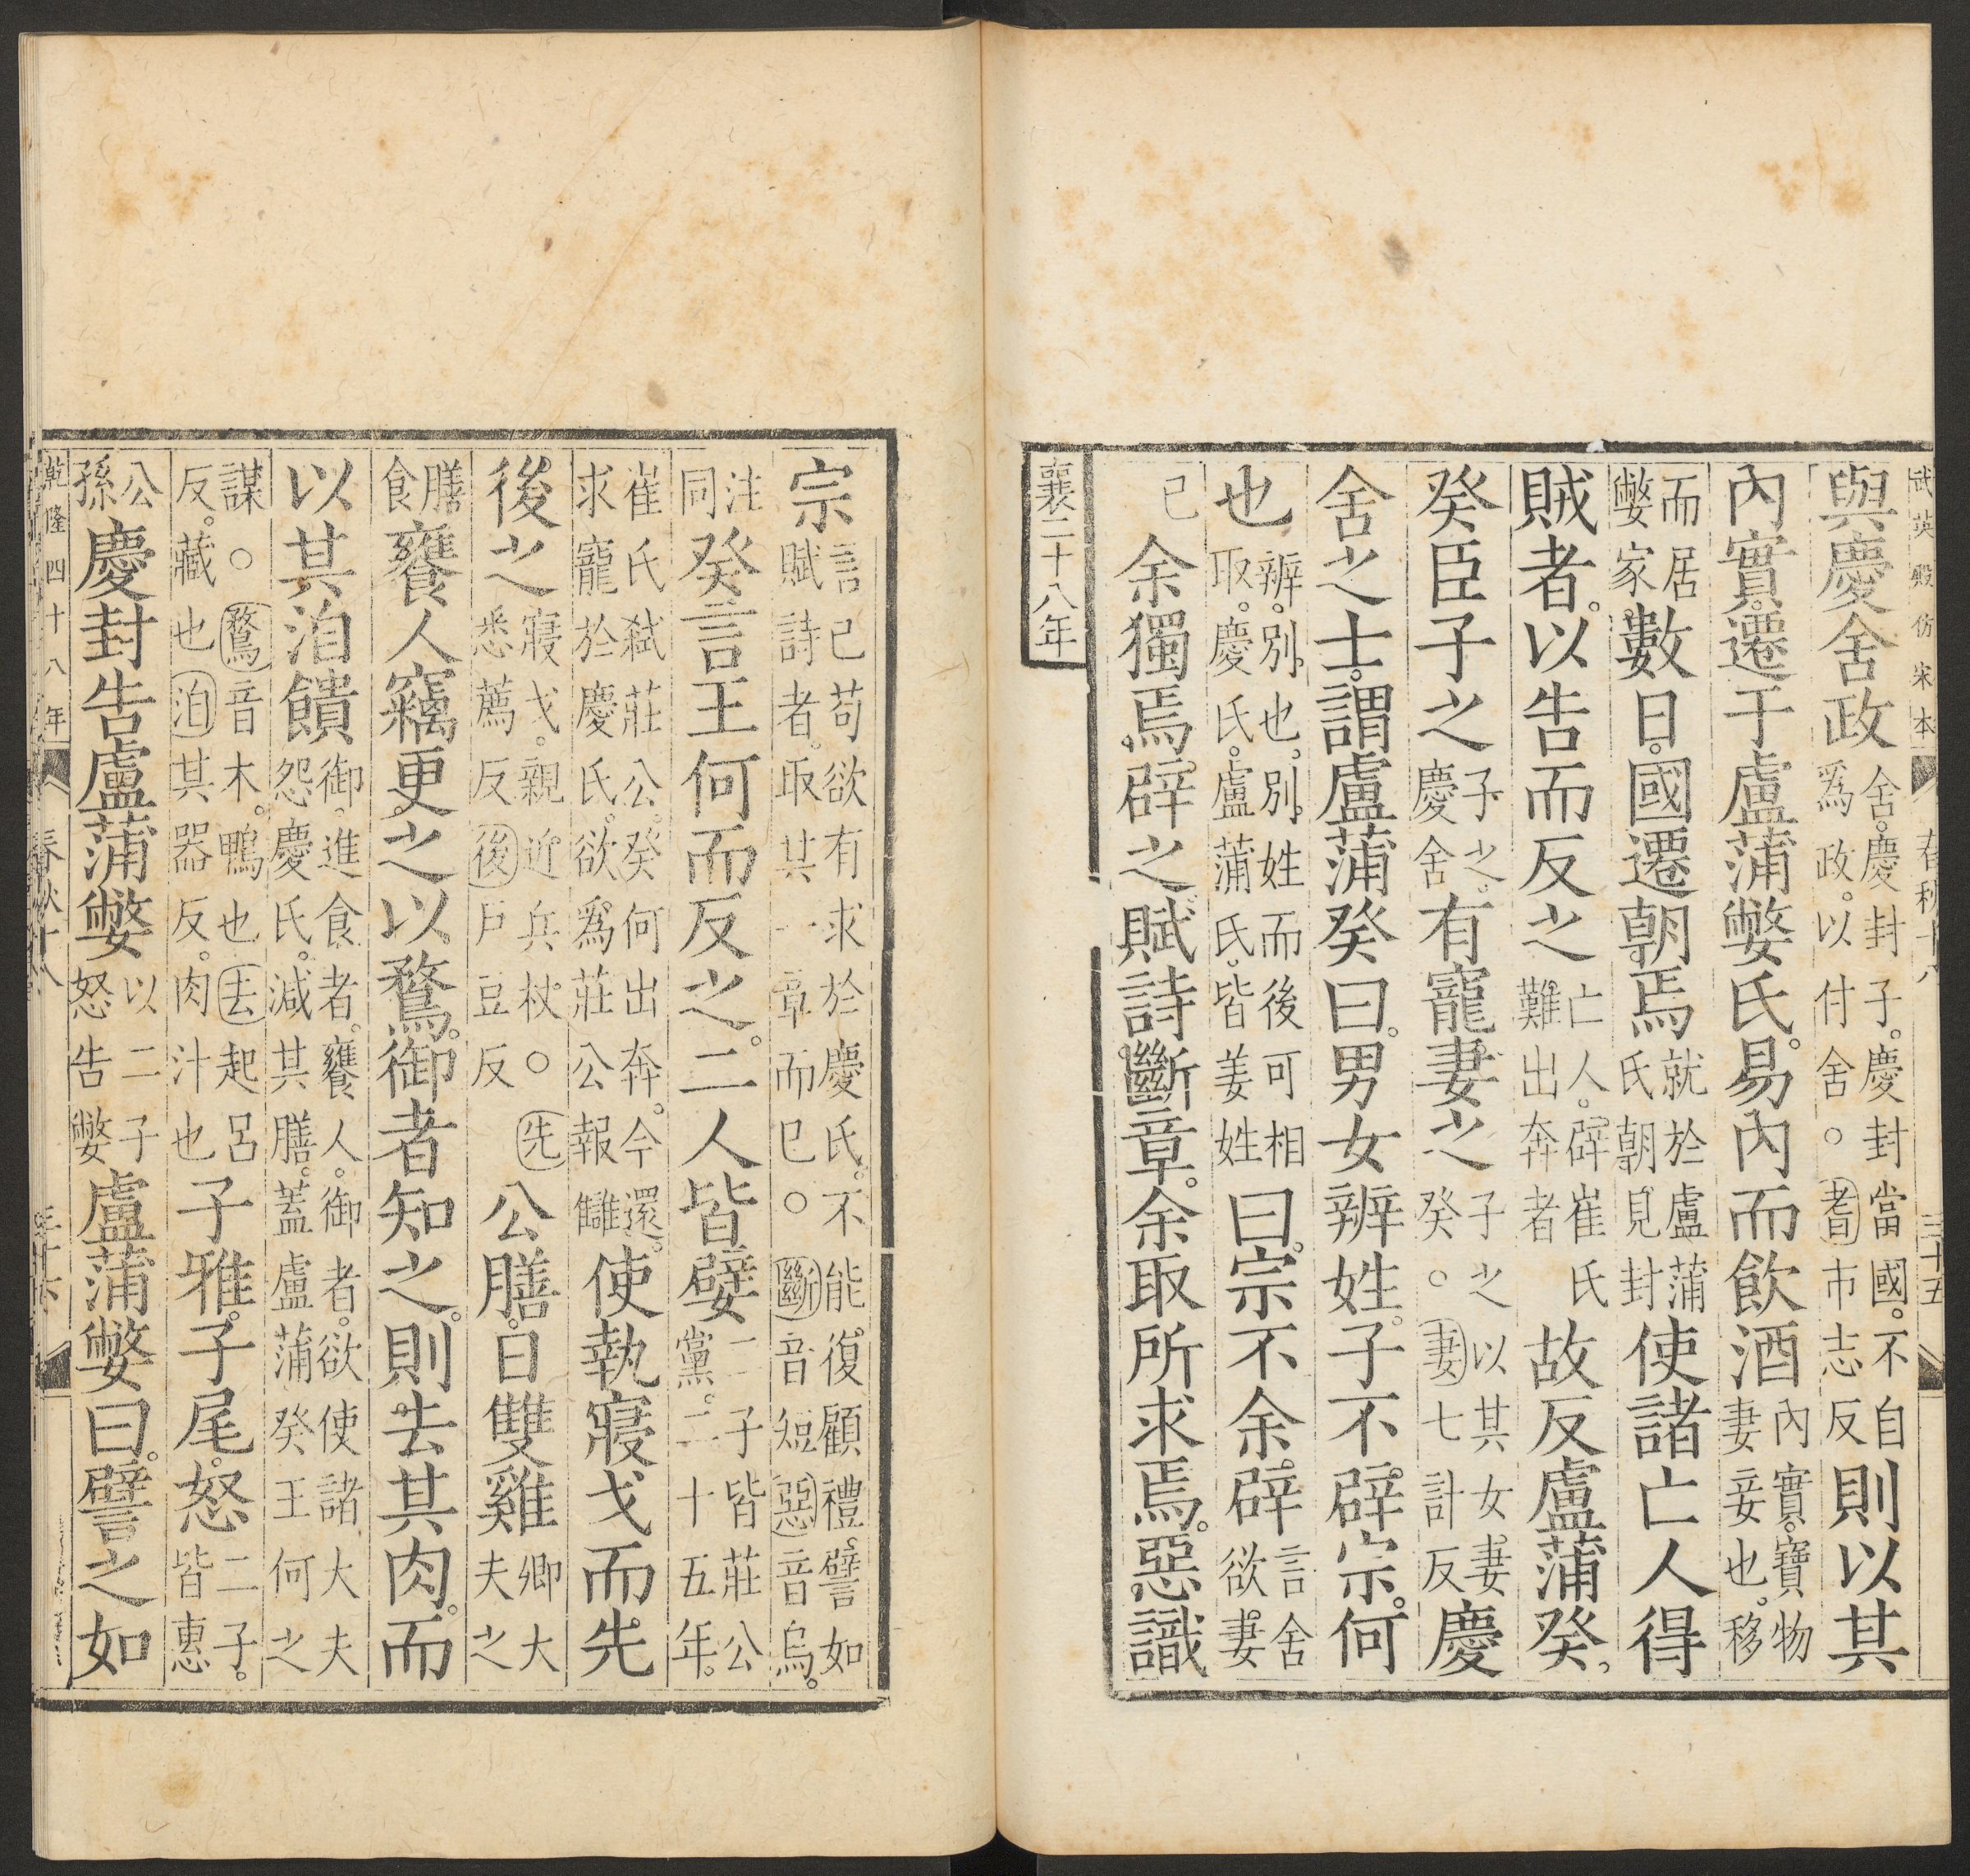 武英殿仿宋本 春秋十八 三十五
與慶舍政舍。慶封子。慶封當國。不自爲政。以付舍。○耆市志反則以其
內實。遷于盧蒲嫳氏。易內而飲酒內實。寶物妻妾也。移
而居嫳家。數日。國遷朝焉就於盧蒲氏朝見封使諸亡人得
賊者。以告而反之亡人。辟崔氏難出奔者故反盧蒲癸。
癸臣子之子之。慶舍有寵妻之子之以其女妻癸。○妻七計反慶
舍之士。謂盧蒲癸曰。男女辨姓。子不辟宗。何
也辨。別也。別姓而後可相取。慶氏。盧蒲氏。皆姜姓曰。宗不余辟言舍欲妻
己余獨焉辟之。賦詩斷章。余取所求焉。惡識
襄二十八年
宗言己苟欲有求於慶氏。不能復顧禮。譬如賦詩者。取其一章而已。○斷音短惡音烏。
注同癸言王何而反之。二人皆嬖二子皆莊公黨。二十五年。
崔氏弒莊公。癸何出奔。今還。求寵於慶氏。欲爲莊公報讎使執寢戈而先
後之寢戈。親近兵杖。○先悉薦反後戶豆反公膳。日雙雞卿大夫之
膳食饔人竊更之以鶩。御者知之。則去其肉。而
以其洎饋御。進食者。饔人。御者。欲使諸大夫怨慶氏。減其膳。蓋盧蒲癸王何之
謀○鶩音木。鴨也去起呂反。藏也洎其器反。肉汁也子雅。子尾。怒二子。皆惠
公孫慶封告盧蒲嫳以二子怒告嫳盧蒲嫳曰。譬之如
乾隆四十八年 春秋十八